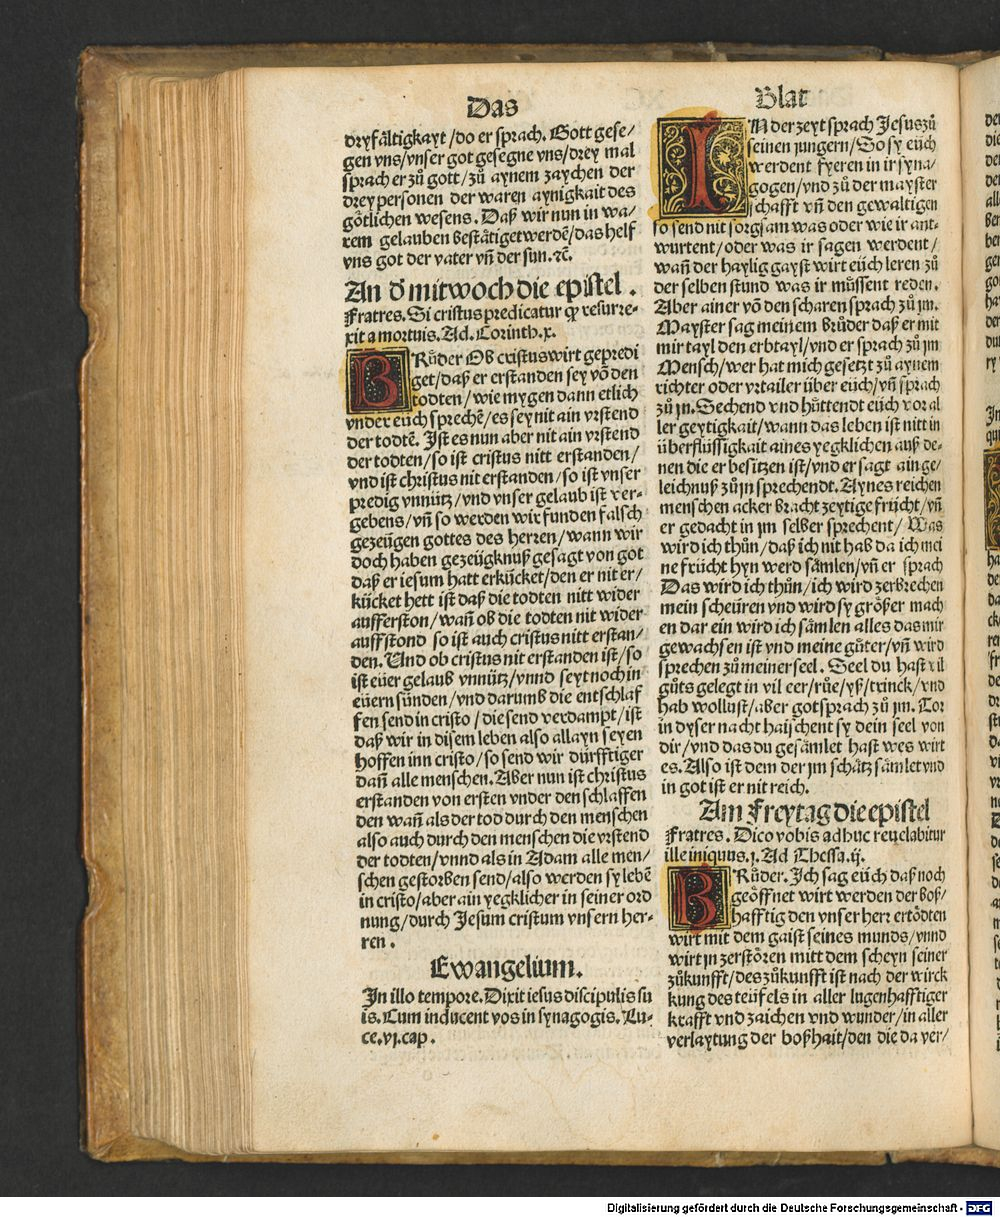 Das
dryfåltigkayt/do er sprach. Gott gese/
gen vns/vnser got gesegne vns/drey mal
sprach er zů gott/zů aynem zaychen der
drey personen der waren aynigkait des
gôtlichen wesens. Daß wir nun in wa/
rem gelauben beståtiget werdẽ/das helf
vns got der vater vñ der sun. ⁊c̃.
An d̕ mitwoch die epistel.
Fratres. Si cristus predicatur ꝙ resurre-
xit a mortuis. Ad. Corinth. x.
BRůder Ob cristus wirt gepredi
get/daß er erstanden sey võ den
todten/wie mygen dann etlich
vnder euch sprechẽ/es sey nit ain vrstend
der todtẽ. Ist es nun aber nit ain vrstend
der todten/so ist cristus nitt erstanden/
vnd ist christus nit erstanden/so ist vnser
predig vnnütz/vnd vnser gelaub ist ver-
gebens/vñ so werden wir funden falsch
gezeügen gottes des herren/wann wir
doch haben gezeügknuß gesagt von got
daß er iesum hatt erkücket/den er nit er/
kücket hett ist daß die todten nitt wider
aufferston/wañ ob die todten nit wider
auffstond so ist auch cristus nitt erstan/
den. Und ob cristus nit erstanden ist/so
ist eüer gelaub vnnütz/vnnd seyt noch in
eüern sünden/vnd darumb die entschlaf
fen send in cristo/die send verdampt/ist
daß wir in disem leben also allayn seyen
hoffen inn cristo/so send wir dürfftiger
dañ alle menschen. Aber nun ist christus
erstanden von ersten vnder den schlaffen
den wañ als der tod durch den menschen
also auch durch den menschen die vrstend
der todten/vnnd als in Adam alle men/
schen gestorben send/also werden sy lebẽ
in cristo/aber ain yegklicher in seiner ord
nung/durch Jesum cristum vnsern her-
ren.
Ewangelium.
In illo tempore. Dixit iesus discipulis su
is. Cum inducent vos in synagogis. Lu-
ce. vj. cap.
Blat
IN der zeyt sprach Jesus zů
seinen jungern/So sy eüch
werdent fyeren in ir syna-
gogen/vnd zů der mayster
schafft vñ den gewaltigen
so send nit sorgsam was oder wie ir ant-
wurtent/oder was ir sagen werdent/
wañ der haylig gayst wirt eüch leren zů
der selben stund was ir můssent reden.
Aber ainer võ den scharen sprach zů jm.
Mayster sag meinem brůder daß er mit
mir tayl den erbtayl/vnd er sprach zů jm
Mensch/wer hat mich gesetzt zů aynem
richter oder vrtailer über eüch/vñ sprach
zů jn. Sechend vnd hüttendt eüch vor al
ler geytigkait/wann das leben ist nitt in
überflüssigkait aines yegklichen auß de-
nen die er besitzen ist/vnd er sagt ain ge/
leichnuß zů jn sprechendt. Aynes reichen
menschen acker bracht zeytige frücht/vñ
er gedacht in jm selber sprechent/Was
wird ich thůn/daß ich nit hab da ich mei
ne frücht hyn werd såmlen/vñ er sprach
Das wird ich thůn/ich wird zerbrechen
mein scheüren vnd wird sy größer mach
en dar ein wird ich såmlen alles das mir
gewachsen ist vnd meine gůter/vñ wird
sprechen zů meiner seel. Seel du hast vil
gůts gelegt in vil eer/růe/yß/trinck/vnd
hab wollust/aber got sprach zů jm. Tor
in dyser nacht haischent sy dein seel von
dir/vnd das du gesåmlet hast wes wirt
es. Also ist dem der jm schåtz såmlet vnd
in got ist er nit reich.
Am Freytag die epistel
Fratres. Dico vobis adhuc reuelabitur
ille iniquus. j. Ad Thessa. ij.
BRůder. Ich sag eüch daß noch
geôffnet wirt werden der boß/
hafftig den vnser herr ertôdten
wirt mit dem gaist seines munds/vnnd
wirt jn zerstôren mitt dem scheyn seiner
zůkunfft/des zůkunfft ist nach der wirck
kung des teüfels in aller lugenhafftiger
krafft vnd zaichen vnd wunder/in aller
verlaytung der boßhait/den die da ver/
Digitalisierung gefördert durch die Deutsche Forschungsgemeinschaft - DFG